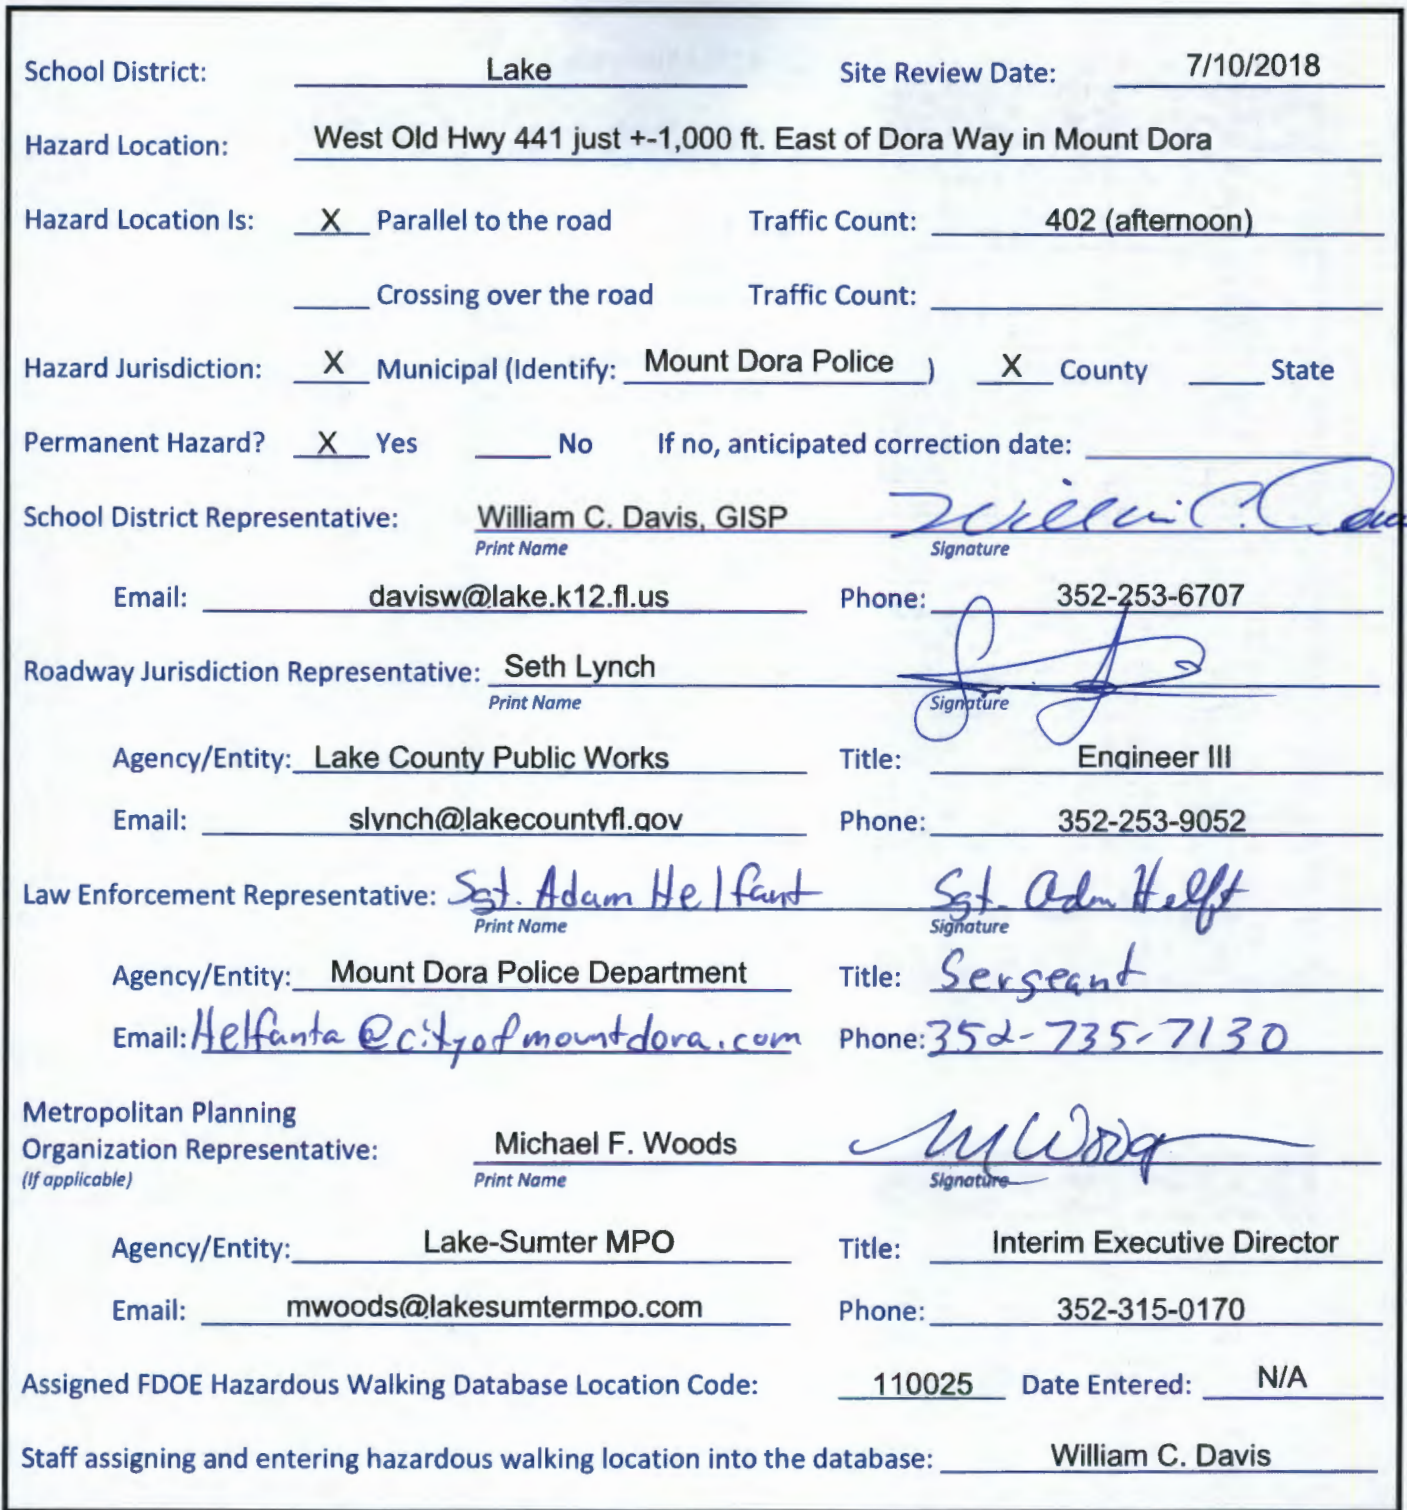 School District: Lake Site Review Date: 7/10/2018
Hazard Location: West Old Hwy 441 just +-1,000 ft. East of Dora Way in Mount Dora
Hazard Location Is: X Parallel to the road Traffic Count: 402 (afternoon)
Crossing over the road Traffic Count:
Hazard Jurisdiction: X Municipal (Identify: Mount Dora Police ) X County State
Permanent Hazard? X Yes No If no, anticipated correction date:
School District Representative: William C. Davis, GISP William C. Davis
Print Name Signature
Email: davisw@lake.k12.fl.us Phone: 352-253-6707
Roadway Jurisdiction Representative: Seth Lynch
Print Name Signature
Agency/Entity: Lake County Public Works Title: Engineer III
Email: slynch@lakecountyfl.gov Phone: 352-253-9052
Law Enforcement Representative: Sgt. Adam Helfant Sgt. Adm Helft
Print Name Signature
Agency/Entity: Mount Dora Police Department Title: Sergeant
Email: Helfanta@cityofmountdora.com Phone: 352-735-7130
Metropolitan Planning
Organization Representative: Michael F. Woods MWoods
(If applicable) Print Name Signature
Agency/Entity: Lake-Sumter MPO Title: Interim Executive Director
Email: mwoods@lakesumtermpo.com Phone: 352-315-0170
Assigned FDOE Hazardous Walking Database Location Code: 110025 Date Entered: N/A
Staff assigning and entering hazardous walking location into the database: William C. Davis